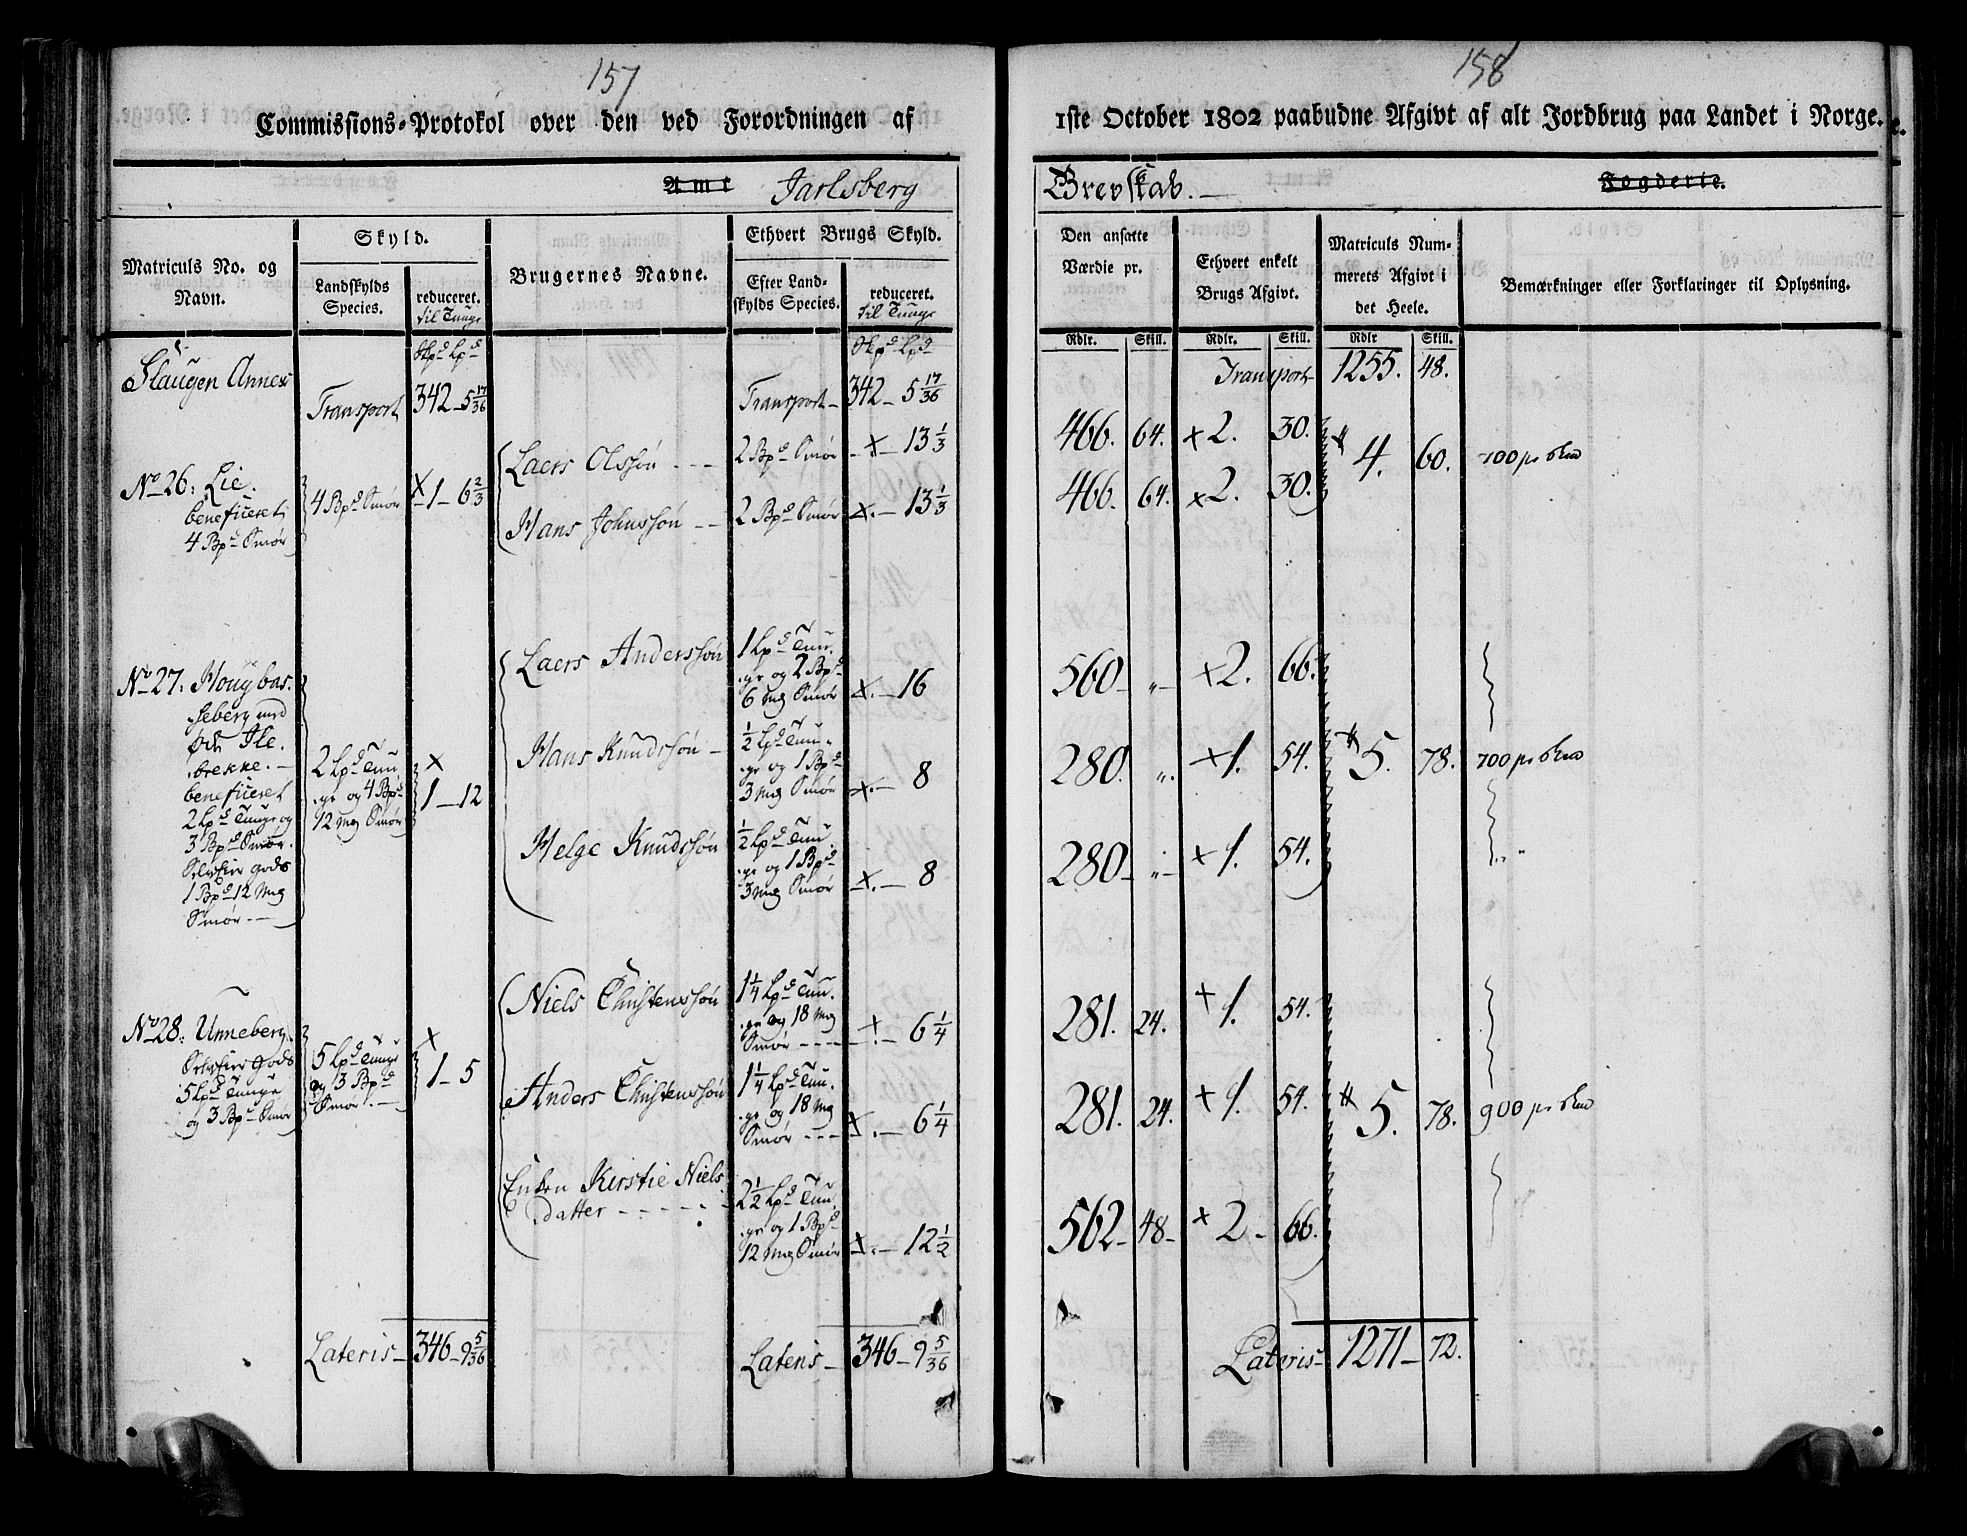 157
Commissions-Protokol over den ved Forordningen af
Amt Jarlsberg
Matriculs No. og Navn.
Skyld.
Landskylds Species.
reduceret. til Tunge
Brugernes Navne.
Ethvert Brugs Skyld.
Efter Landskylds Species.
reduceret. til Tunge
Skpd Lpd
Skpd Lpd
Slaugen Annex
Transport 342 - 5 17/36
Transport - 342 - 5 17/36
No 26: Lie.
beneficeret
4 Bpd Smør
4 Bpd Smør
x 1 - 6 2/3
Laers Olssøn - - - 2 Bpd Smør - x - 13 1/3
Hans Johnssøn - - 2 Bpd Smør x. - 13 1/3
No 27: Houg bas-
seberg med
øde Ile-
brekke. -
beneficeret
2 Lpd Tunge og
3 Bpd Smør.
Selveier gods
1 Bpd 12 Mrg
Smør - -
2 Lpd Tun-
ge og 4 Bpd
12 Mrg Smør
x
1 - 12
Laers Anderssøn
1 Lpd Tun-
ge og 2 Bpd
6 Mrg Smør
x. - 16
Hans Knudssøn -
1/2 Lpd Tun-
ge og 1 Bpd
3 Mrg Smør
x. - 8
Helge Knudssøn
1/2 Lpd Tun-
ge og 1 Bpd
3 Mrg Smør
x. - 8
No 28: Unneberg.
Selveier Gods
5 Lpd Tunge
og 3 Bpd Smør
5 Lpd Tunge
og 3 Bpd
Smør. -
x
1 - 5
Niels Christenssøn
1 1/4 Lpd Tun-
ge og 18 Mrg
Smør - - - -
x. - 6 1/4
Anders Christenssøn
1 1/4 Lpd Tun-
ge og 18 Mrg
Smør - - -
x. - 6 1/4
Enken Kirstie Niels
datter - - - - -
2 1/2 Lpd Tun-
ge og 1 Bpd
12 Mrg Smør
x. - 12 1/2
Lateris - 346 - 9 5/36
Lateris - 346 - 9 5/36
158
1ste October 1802 paabudne Afgivt af alt Jordbrug paa Landet i Norge.
Grevskab. -
Fogderie.
Den ansatte Værdie pr.
Ethvert enkelt Brugs Afgivt.
Matriculs Nummerets Afgivt i det Heele.
Bemærkninger eller Forklaringer til Oplysning.
Rdlr. Skill. Rdlr. Skill. Rdlr Skill.
Transport 1255. 48.
466. 64. x 2. 30.
4. 60. 700
466. 64. x 2. 30.
560 - „ - x 2. 66.
280. „. x 1. 54. 5. 78. 700
280 - „ - x 1. 54.
281. 24. x 1. 54.
281. 24. x 1. 54. 5. 78. 900
562 - 48 - x 2 - 66.
Lateris - 1271 - 72.